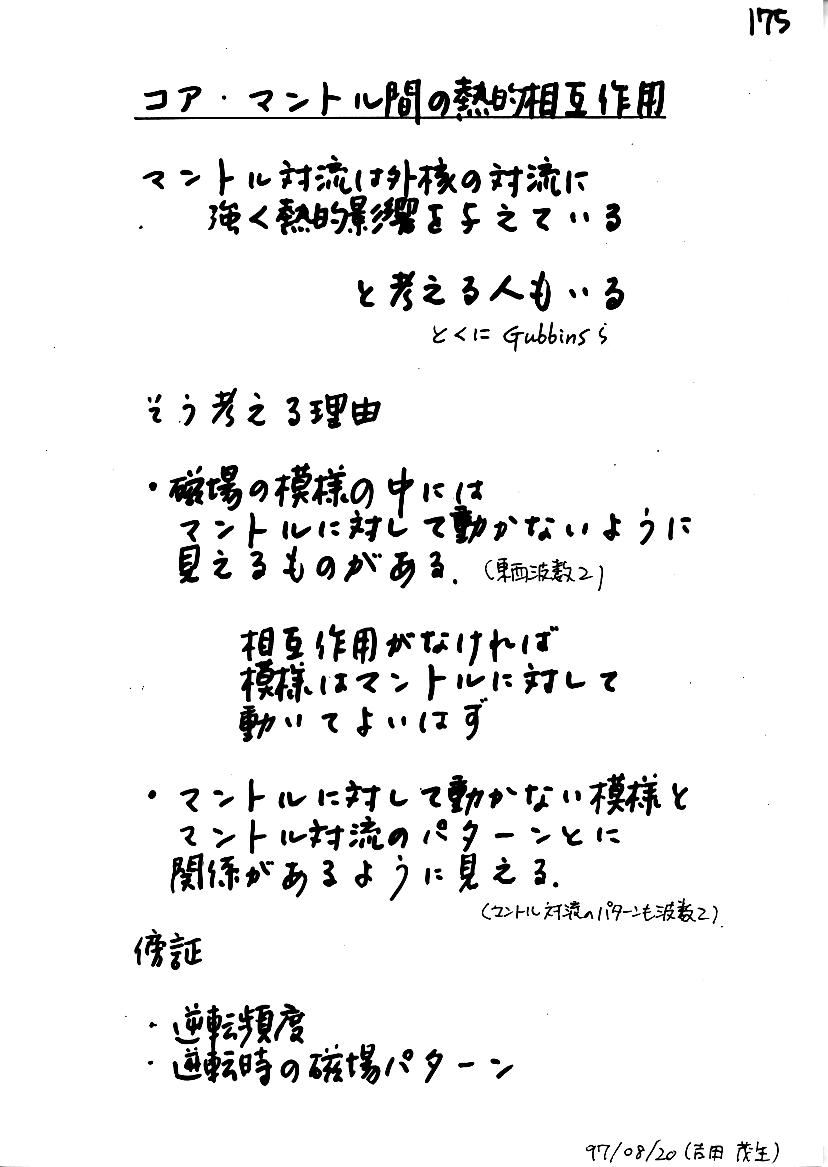 175
コア・マントル間の熱的相互作用
マントル対流は外核の対流に
強く熱的影響を与えている
と考える人もいる
とくに Gubbinsら
そう考える理由
・磁場の模様の中には
マントルに対して動かないように
見えるものがある.(東西波数2)
相互作用がなければ
模様はマントルに対して
動いてよいはず
・マントルに対して動かない模様と
マントル対流のパターンとに
関係があるように見える.
(マントル対流のパターンも波数2)
傍証
・逆転頻度
・逆転時の磁場パターン
97/08/20(吉田 茂生)